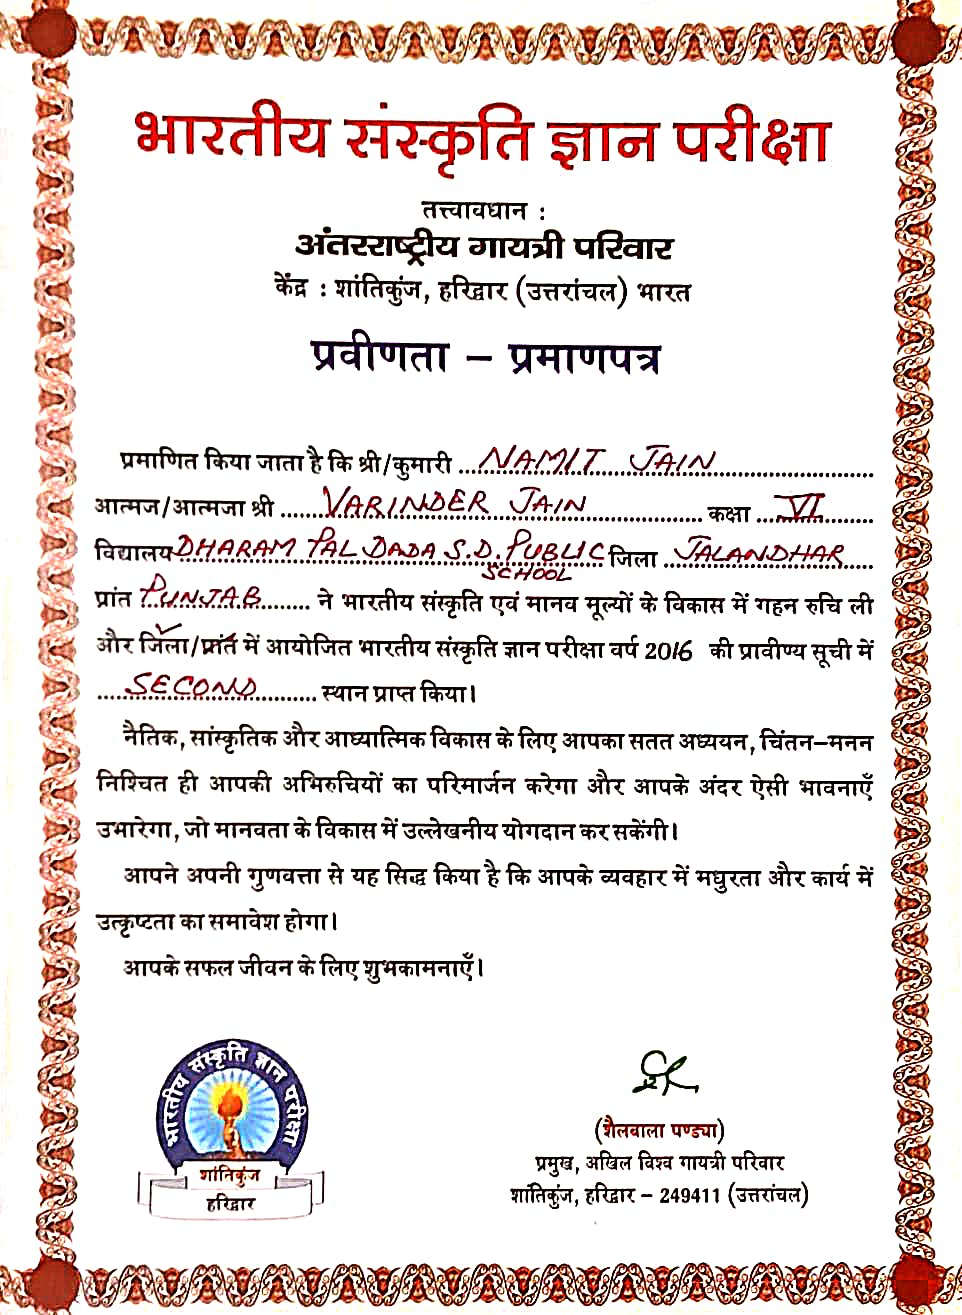 भारतीय संस्कृति ज्ञान परीक्षा
तत्त्वावधान :
अंतरराष्ट्रीय गायत्री परिवार
केंद्र : शांतिकुंज, हरिद्वार (उत्तरांचल) भारत
प्रवीणता – प्रमाणपत्र
प्रमाणित किया जाता है कि श्री/कुमारी ...NAMIT JAIN...
आत्मज/आत्मजा श्री ......VARINDER JAIN...... कक्षा ...VI...
विद्यालय DHARAM PAL DADA S.D. PUBLIC SCHOOL जिला ...JALANDHAR...
प्रांत PUNJAB ........ ने भारतीय संस्कृति एवं मानव मूल्यों के विकास में गहन रुचि ली
और जिला/प्रांत में आयोजित भारतीय संस्कृति ज्ञान परीक्षा वर्ष 2016 की प्रावीण्य सूची में
....SECOND........ स्थान प्राप्त किया।
नैतिक, सांस्कृतिक और आध्यात्मिक विकास के लिए आपका सतत अध्ययन, चिंतन–मनन
निश्चित ही आपकी अभिरुचियों का परिमार्जन करेगा और आपके अंदर ऐसी भावनाएँ
उभारेगा, जो मानवता के विकास में उल्लेखनीय योगदान कर सकेंगी।
आपने अपनी गुणवत्ता से यह सिद्ध किया है कि आपके व्यवहार में मधुरता और कार्य में
उत्कृष्टता का समावेश होगा।
आपके सफल जीवन के लिए शुभकामनाएँ।
भारतीय संस्कृति ज्ञान परीक्षा
शांतिकुंज
हरिद्वार
(शैलबाला पण्ड्या)
प्रमुख, अखिल विश्व गायत्री परिवार
शांतिकुंज, हरिद्वार – 249411 (उत्तरांचल)